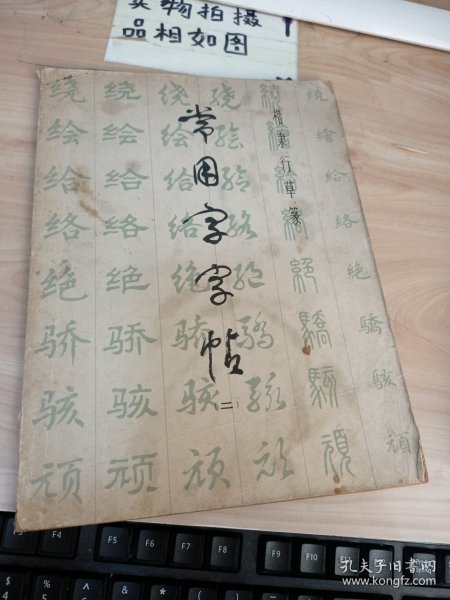 实物拍摄
品相如图
常用字字帖
二
楷隶行草篆
绕 绕 绕 绕 繞 繞
绘 绘 绘 绘 繪 繪
给 给 给 给 給 給
络 络 络 络 絡 絡
绝 绝 绝 绝 絕 絕
骄 骄 骄 驕 驕 驕
骇 骇 骇 駭 駭 駭
顽 顽 顽 顽 頑 頑
F6
F7
F8
F9
F10
F11
%
5
^
6
&
7
*
8
(
9
)
0
孔夫子旧书网
www.kongfz.com